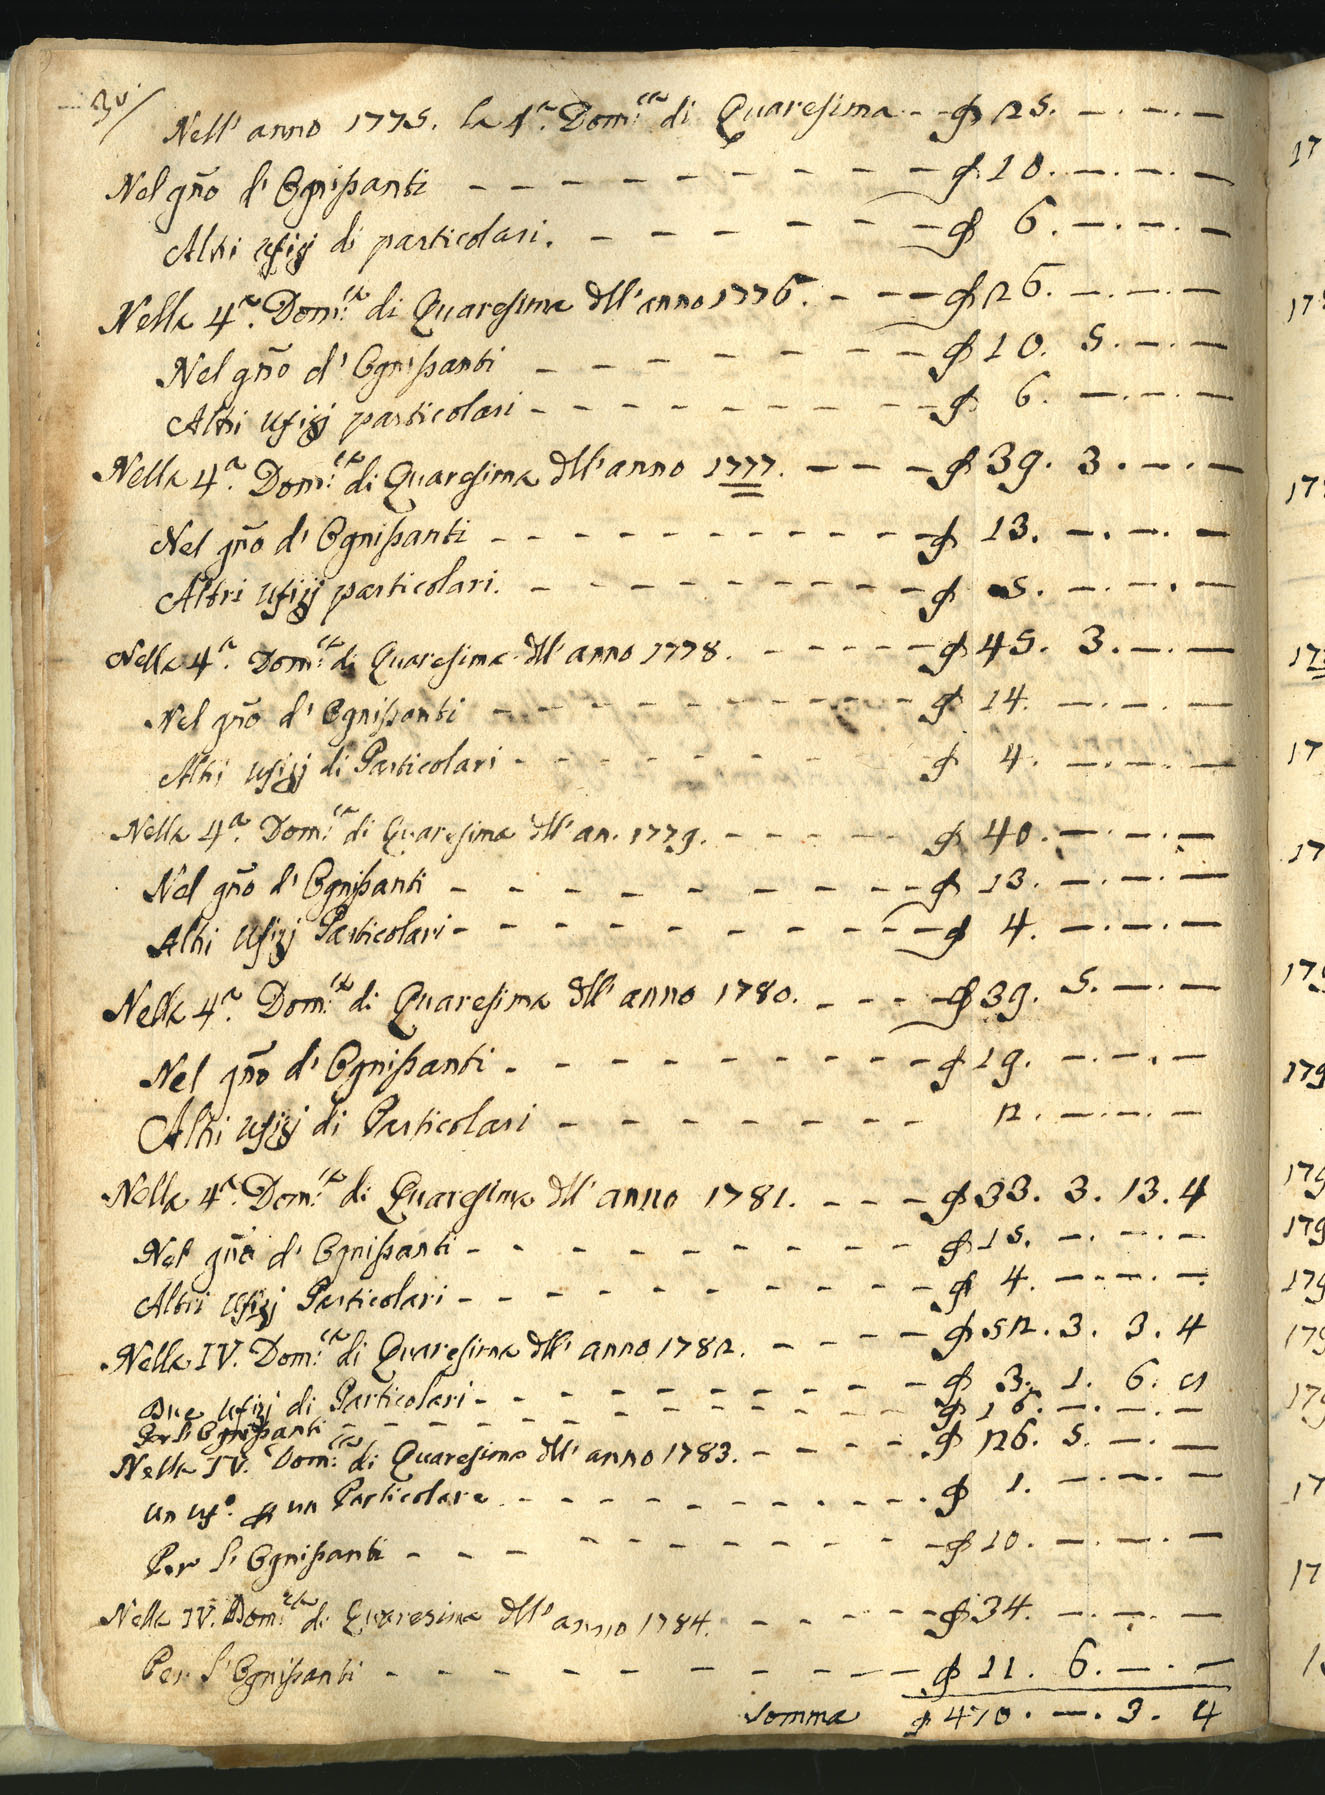 Nell' anno 1775. la 4.ª Dom:ca di Quaresima - - ₰ 25. —. —. —
Nel gño d' Ognißanti - - - - - - - - - ₰ 10. —. —. —
Altri ufizj di particolari. - - - - - - - ₰ 6. —. —. —
Nella 4.ª Dom:ca di Quaresima dll' anno 1776. - - - ₰ 26. —. —. —
Nel gño d' Ognißanti - - - - - - - - ₰ 10. 5. —. —
Altri ufizj particolari - - - - - - - - ₰ 6. —. —. —
Nella 4.ª Dom:ca di Quaresima dll' anno 1777. - - - ₰ 39. 3. —. —
Nel gño d' Ognißanti - - - - - - - - - ₰ 13. —. —. —
Altri ufizj particolari. - - - - - - - - ₰ 5. —. —. —
Nella 4.ª Dom:ca di Quaresima dll' anno 1778. - - - - - ₰ 45. 3. —. —
Nel gño d' Ognißanti - - - - - - - - - ₰ 14. —. —. —
Altri ufizj di Particolari - - - - - - - - ₰ 4. —. —. —
Nella 4.ª Dom:ca di Quaresima dll' an. 1779. - - - - - ₰ 40. —. —. —
Nel gño d' Ognißanti - - - - - - - - - ₰ 13. —. —. —
Altri Ufizj Particolari - - - - - - - - - ₰ 4. —. —. —
Nella 4.ª Dom:ca di Quaresima dll' anno 1780. - - - - ₰ 39. 5. —. —
Nel gño d' Ognißanti - - - - - - - - - ₰ 19. —. —. —
Altri ufizj di Particolari - - - - - - - 2. —. —. —
Nella 4.ª Dom:ca di Quaresima dll' anno 1781. - - - ₰ 33. 3. 13. 4
Nel gño d' Ognißanti - - - - - - - - - - ₰ 15. —. —. —
Altri ufizj Particolari - - - - - - - - - - ₰ 4. —. —. —
Nella IV. Dom:ca di Quaresima dll' anno 1782. - - - - ₰ 52. 3. 3. 4
Due Ufizj di Particolari - - - - - - - - - ₰ 3. 1. 6.
Per l' Ognißanti - - - - - - - - - - - ₰ 16. —. —. —
Nella IV. Dom:ca di Quaresima dll' anno 1783. - - - - ₰ 26. 5. —. —
Un uf.º un Particolare - - - - - - - - - ₰ 1. —. —. —
Per l' Ognißanti - - - - - - - - - - - ₰ 10. —. —. —
Nella IV. Dom:ca di Quaresima dll' anno 1784. - - - - - ₰ 34. —. —. —
Per l' Ognißanti - - - - - - - - - - - ₰ 11. 6. —. —
Somma ₰ 470. —. 3. 4